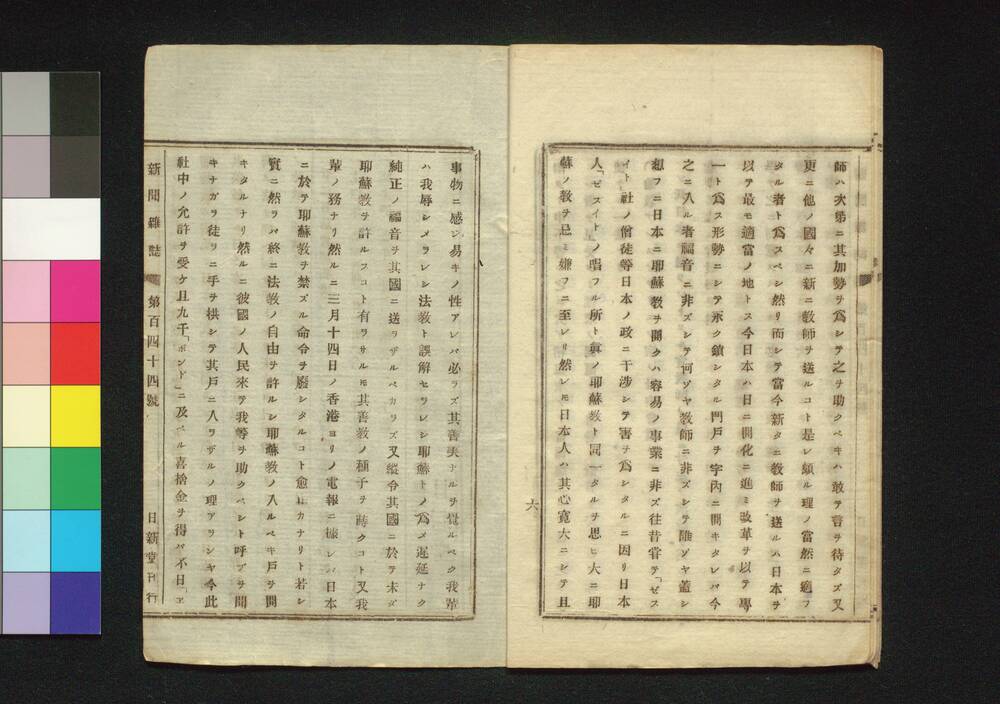 師ハ次第ニ其加勢ヲ為シテ之ヲ助クベキハ敢テ言ヲ待タズ又
更ニ他ノ國々ニ新ニ教師ヲ送ルコト是レ頗ル理ノ當然ニ適フ
タル者ト為スベシ然リ而シテ當今新タニ教師ヲ送ルハ日本ヲ
以テ最モ適當ノ地トス今日本ハ日ニ開化ニ進ミ改革ヲ以テ專
一ト為ス形勢ニシテ永ク鎖シタル門戸ヲ宇内ニ開キタレバ今
之ニ入ル者福音ニ非ズシテ何ゾヤ教師ニ非ズシテ誰ゾヤ蓋シ
想フニ日本ニ耶蘇教ヲ開クハ容易ノ事業ニ非ズ往昔嘗テ「ゼス
イト社ノ僧徒等日本ノ政ニ干渉シテ害ヲ為シタルニ因リ日本
人「ゼスイト」ノ唱フル所ト眞ノ耶蘇教ト同一タルヲ思ヒ大ニ耶
蘇ノ教ヲ忌ミ嫌フニ至レリ然レモ日本人ハ其心寛大ニシテ且
六
事物ニ感シ易キノ性アレバ必ラズ其善美ナルヲ覺ルベク我輩
ハ我辱シメラレシ法教ト誤解セラレシ耶蘇トノ為メ遅延ナク
純正ノ福音ヲ其國ニ送ラザルベカラズ又縱令其國ニ於テ未ダ
耶蘇教ヲ許ルスコト有ラサルモ其善教ノ種子ヲ蒔クコト又我
輩ノ務ナリ然ルニ三月十四日ノ香港ヨリノ電報ニ據レバ日本
ニ於テ耶蘇教ヲ禁ズル命令ヲ廢シタルコト愈ヨカナリト若シ
實ニ然ラバ終ニ法教ノ自由ヲ許ルシ耶蘇教ノ入ルベキ戸ヲ開
キタルナリ然ルニ彼國ノ人民來テ我等ヲ助クベシト呼ブヲ聞
キナガラ徒ラニ手ヲ拱シテ其戸ニ入ラザルノ理アランヤ今此
社中ノ允許ヲ受ケ且九千「ポンド」ニ及ベル喜捨金ヲ得バ不日「ア
新聞雜誌 第百四十四號 日新堂刊行